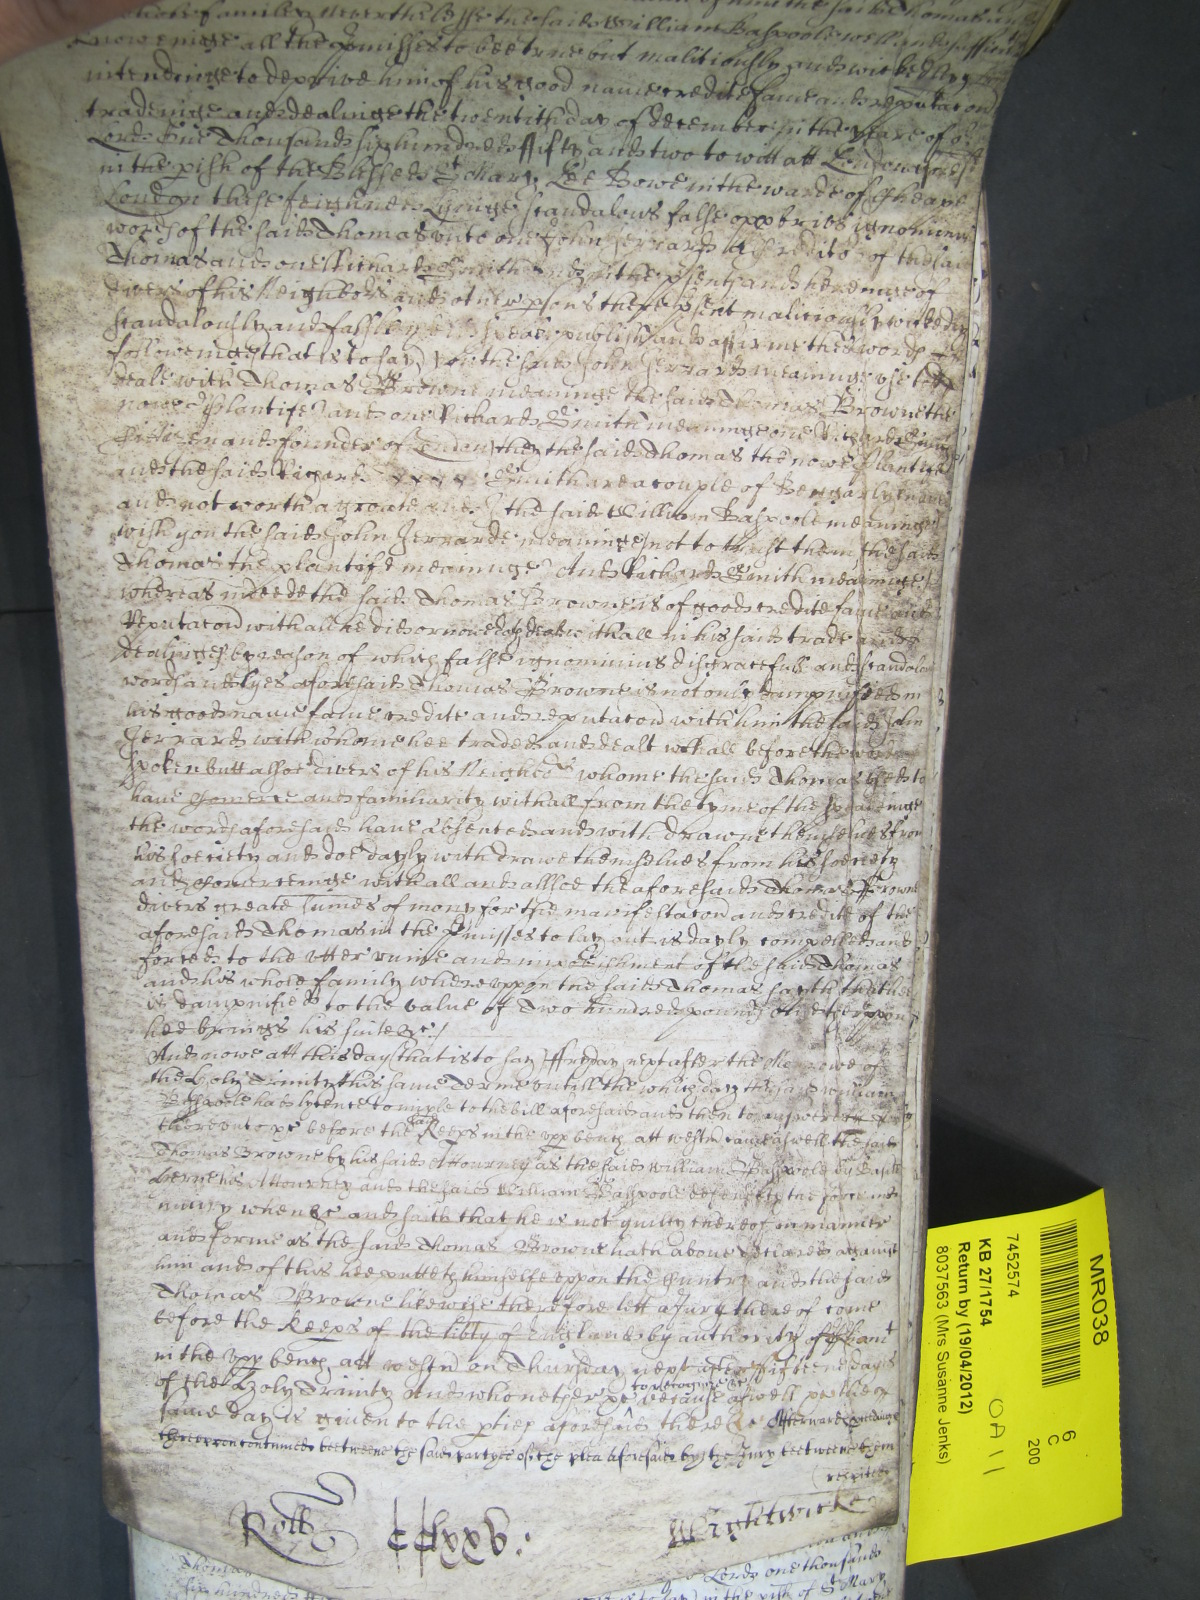 whole familey Neverthelesse the said William Baspoole well and sufficiently
knoweinge all the p'misses to bee true but malitiously and wickedly
intendinge to deprive him of his good name credite fame and reputacon
tradeinge and dealinge the twentith day of december in the yeare of or
Lord One Thousand six hundred fifty and two to witt att London
in the pish of the Blessed St Mary Le Bowe in the warde of Cheape
London these feigned Lyeinge scandalous false opprobrious ignominious
words of the said Thomas unto one John Jerrard a Creditor of the said
Thomas and one Richard Smith and in the psence and heareinge of
divers of his Neighbors and other psons there psent malitiously wickedly
scandalously and falsley did speake publish and affirme theis words
followeinge that is to say you the said John Jerrard meaninge use to
deale with Thomas Browne meaninge the said Thomas Browne the
nowe Plantife and one Richard Smith meaninge one Richard Smith
Citizen and founder of London they the said Thomas the nowe Plantife
and the said Richard Smith are a couple of Beggarly knaves
and not worth a groate and I the said William Baspoole meaninge
wish you the said John Jerrarde meaninge not to trust them the said
Thomas the plantife meaninge And Richard Smith meaninge
whereas indeede the said Thomas Browne is of good credite fame and
Reputacon with all he did or nowe doth deale withall in his said trade and
dealinges by reason of which false ignominius disgracefull and scandalous
words and lyes aforesaid Thomas Browne is not only dampnifyed in
his good name fame credite and reputacon with him the said John
Jerrard with whome hee traded and dealt withall before the words
spoken butt alsoe divers of his Neighbors whome the said Thomas used to
have Comerce and familiarity withall from the tyme of the speakinge
the words aforesaid have absented and with drawne themselves from
his society and doe dayly with drawe themselves from his society
and Comerceinge withall and allsoe the aforesaid Thomas Browne
divers greate sumes of mony for the manifestacon and credite of the
aforesaid Thomas in the p'misses to lay out is dayly compelled and
forced to the utter ruine and impoverishment of the said Thomas
and his whole family whereuppon the said Thomas sayth that hee
is dampnified to the value of Two hundred pounds and thereuppon
hee brings his suite &c
And nowe att this day that is to say Fryday next after the Morrowe of
the Holy Trinity this same Terme untill the which day the said William
Baspoole had lycence to imple to the bill aforesaid and then to answere
thereunto &c before the said Keeps in the upp bench att westm came aswell the said
Thomas Browne by his said Attourney as the said William Baspoole by Basill
Herne his Attourney and the said William Baspoole defendeth the force and
iniury when &c and saith that he is not guilty thereof in manner
and forme as the said Thomas Browne hath above declared against
him and of this hee putteth himselfe uppon the Cuntry and the said
Thomas Browne likewise therefore lett a Jury thereof come
before the Keeps of the libty of England by authority of Pliamt
in the upp bench att westm on Thursday next after Fifteene dayes
of the Holy Trinity And who neither &c to recognize &c because aswell &c the
same day is given to the pties aforesaid there &c Afterwards
thereuppon continued betweene the said partyes of the plea aforesaid by the Jury betweene them
respited
Roll CClxxv:
Wightwicke
Thomas
Lord one thousand
six hundred
in the pish of St Mary
MR038
6
C
200
7452574
KB 27/1754
Return by (19/04/2012)
8037563 (Mrs Susanne Jenks)
OA11